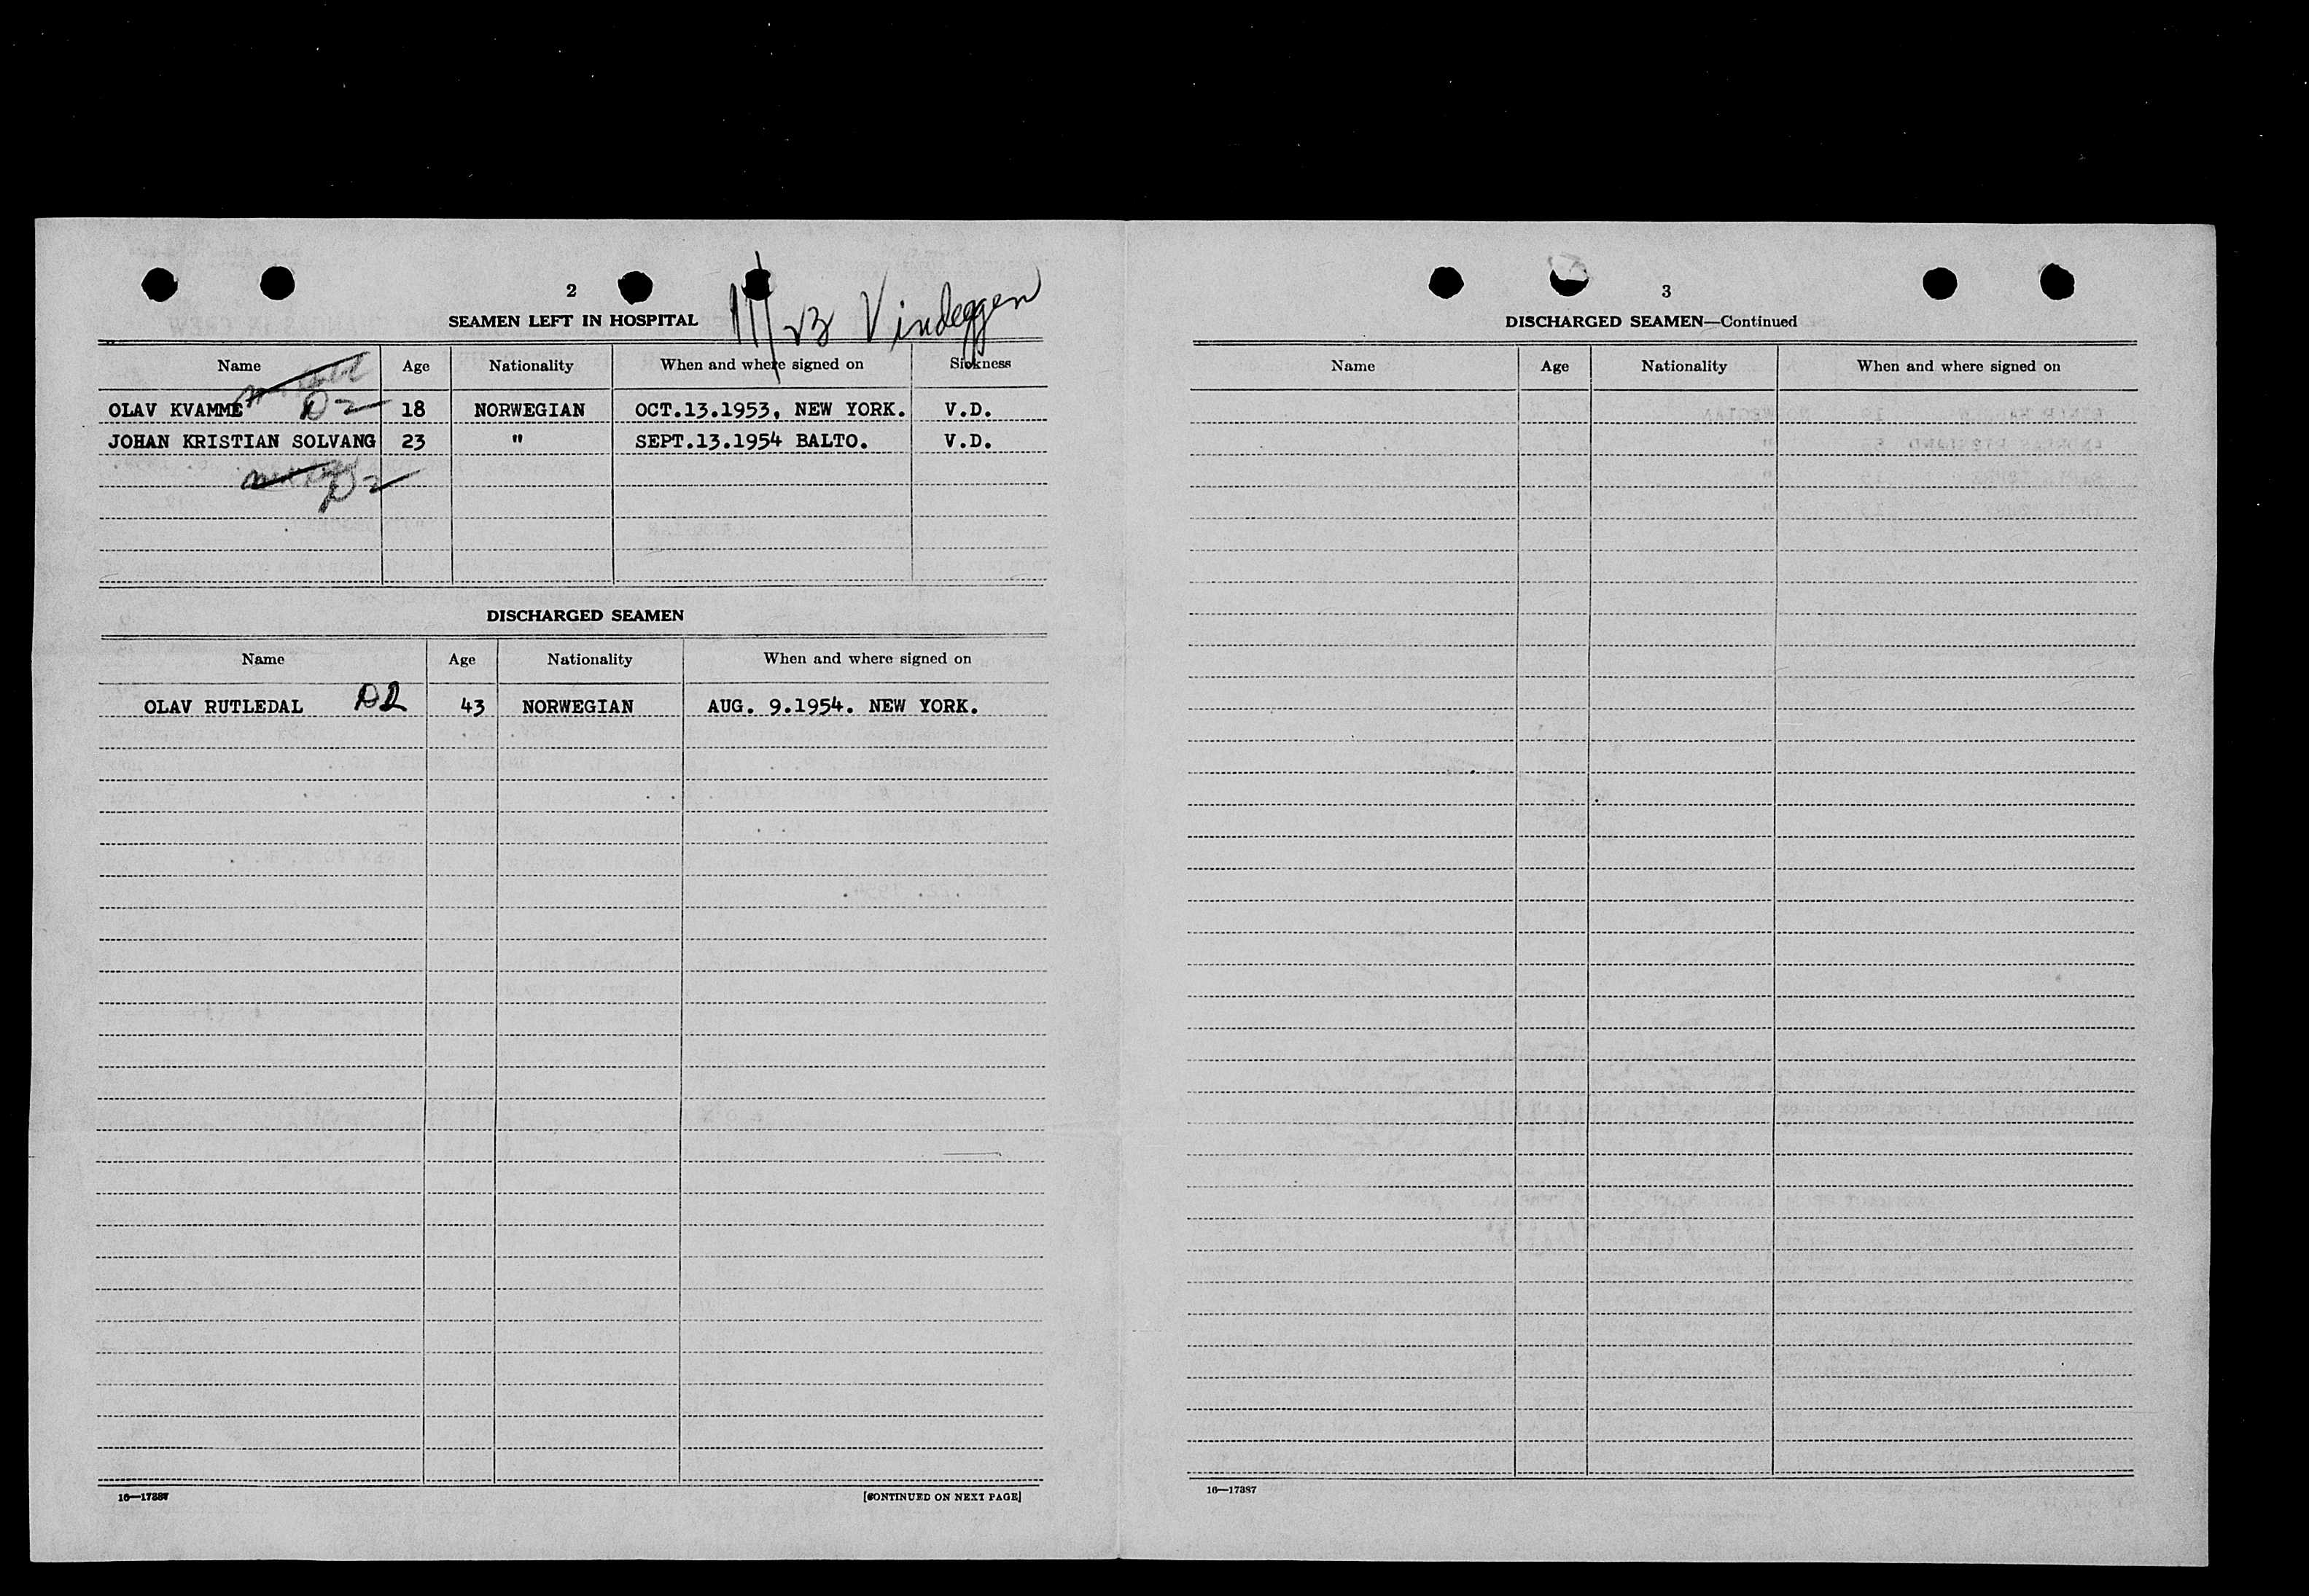 2
SEAMEN LEFT IN HOSPITAL
11/23 Vindeggen
Name Age Nationality When and where signed on Sickness
OLAV KVAMME D2 18 NORWEGIAN OCT.13.1953, NEW YORK. V.D.
JOHAN KRISTIAN SOLVANG 23 " SEPT.13.1954 BALTO. V.D.
D2
DISCHARGED SEAMEN
Name Age Nationality When and where signed on
OLAV RUTLEDAL D2 43 NORWEGIAN AUG. 9.1954. NEW YORK.
16—17387
[CONTINUED ON NEXT PAGE]
3
DISCHARGED SEAMEN—Continued
Name Age Nationality When and where signed on
16—17387